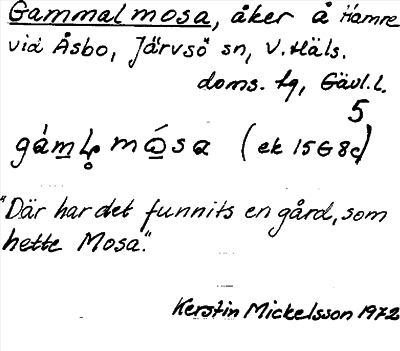 Gammalmosa, åker å Hamre
vid Åsbo, Järvsö sn, V. Häls.
doms. tg, Gävl. l.
5
mósa (ek 15G8c)
"Där har det funnits en gård, som
hette Mosa."
Kerstin Mickelsson 1972